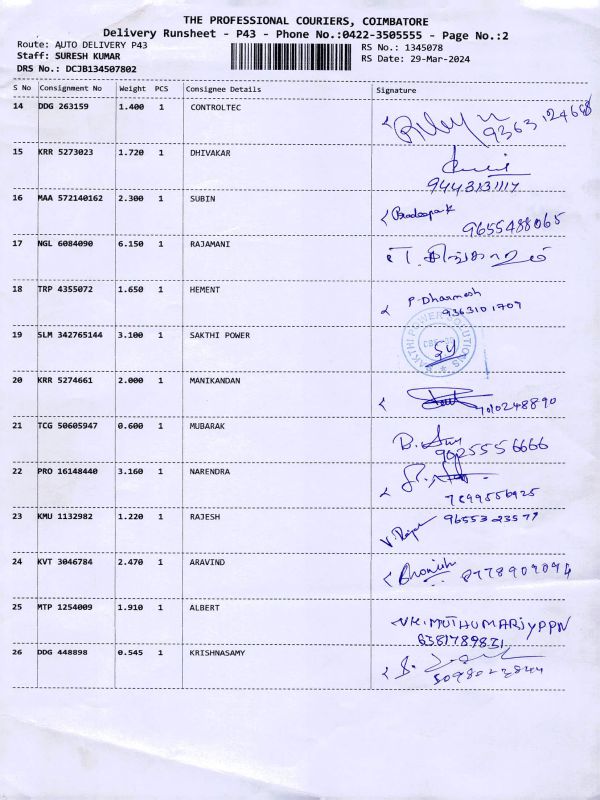 THE PROFESSIONAL COURIERS, COIMBATORE
Delivery Runsheet - P43 - Phone No.:0422-3505555 - Page No.:2
Route: AUTO DELIVERY P43 RS No.: 1345078
Staff: SURESH KUMAR RS Date: 29-Mar-2024
DRS No.: DCJB134507802
S No Consignment No Weight PCS Consignee Details Signature
14 DDG 263159 1.400 1 CONTROLTEC
9363124668
15 KRR 5273023 1.720 1 DHIVAKAR
9443131117
16 MAA 572140162 2.300 1 SUBIN
9655488065
17 NGL 6084090 6.150 1 RAJAMANI
18 TRP 4355072 1.650 1 HEMENT P. Dharmesh
9363101709
19 SLM 342765144 3.100 1 SAKTHI POWER SAKTHI POWER SOLUTIONS
20 KRR 5274661 2.000 1 MANIKANDAN
7010248890
21 TCG 50605947 0.600 1 MUBARAK
9025556666
22 PRO 16148440 3.160 1 NARENDRA
23 KMU 1132982 1.220 1 RAJESH 9655323577
24 KVT 3046784 2.470 1 ARAVIND
8778909094
25 MTP 1254009 1.910 1 ALBERT
6381789831
26 DDG 448898 0.545 1 KRISHNASAMY